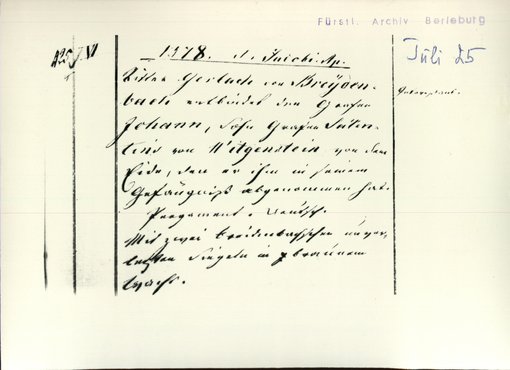 Fürstl. Archiv Berleburg
Juli 25
1378. d. Jacobi Ap.
Ritter Gerlach von Breyden-
bach entbindet den Grafen
Johann, Sohn Grafen
von Witgenstein von dem
Eide, den er ihm in seinem
Gefängniß abgenommen hat.
Pergament. Deutsch.
Mit zwei breidenbachschen unver-
letzten Siegeln in braunem
Wachs.